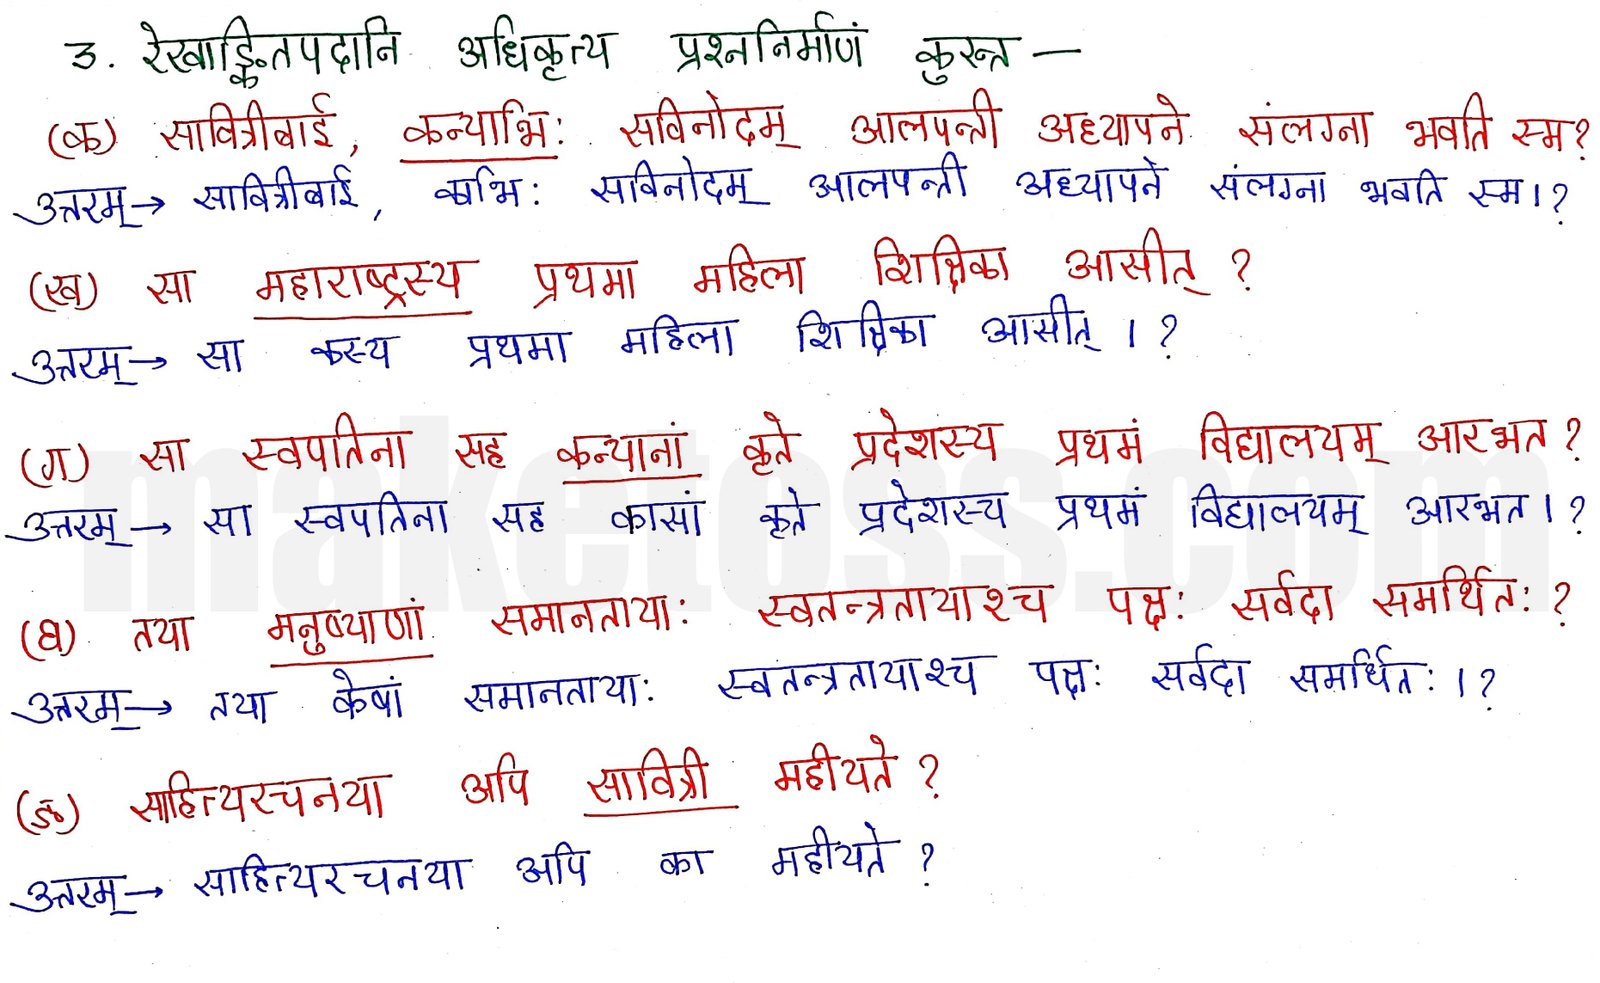 3. रेखाङ्कितपदानि अधिकृत्य प्रश्ननिर्माणं कुरुत —
(क) सावित्रीबाई, कन्याभिः सविनोदम् आलपन्ती अध्यापने संलग्ना भवति स्म?
उत्तरम् → सावित्रीबाई, काभिः सविनोदम् आलपन्ती अध्यापने संलग्ना भवति स्म।?
(ख) सा महाराष्ट्रस्य प्रथमा महिला शिक्षिका आसीत् ?
उत्तरम् → सा कस्य प्रथमा महिला शिक्षिका आसीत् ।?
(ग) सा स्वपतिना सह कन्यानां कृते प्रदेशस्य प्रथमं विद्यालयम् आरभत ?
उत्तरम् → सा स्वपतिना सह कासां कृते प्रदेशस्य प्रथमं विद्यालयम् आरभत।?
(घ) तया मनुष्याणां समानतायाः स्वतन्त्रतायाश्च पक्षः सर्वदा समर्थितः?
उत्तरम् → तया केषां समानतायाः स्वतन्त्रतायाश्च पक्षः सर्वदा समर्थितः।?
(ङ) साहित्यरचनया अपि सावित्री महीयते ?
उत्तरम् → साहित्यरचनया अपि का महीयते ?
maketoss.com